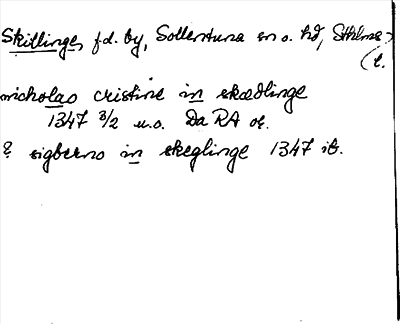 Skillinge, f.d. by, Sollentuna sn o. hd, Sthlms
l.
nicholao cristine in skædlinge
1347 3/2 u.o. Da RA or.
& sigberno in skeglinge 1347 ib.